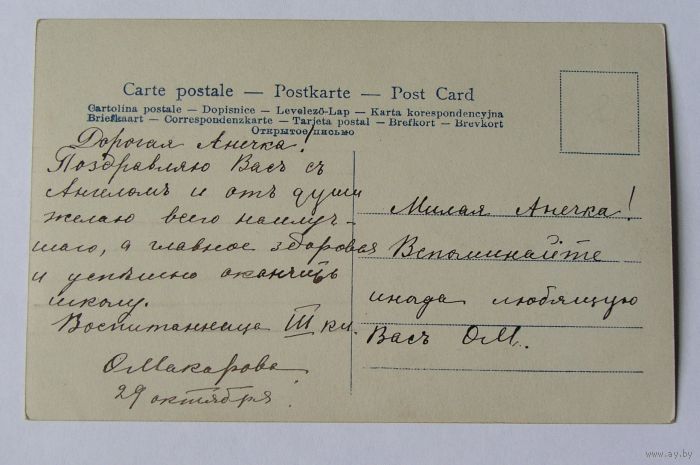 Carte postale — Postkarte — Post Card
Cartolina postale — Dopisnice — Levelező-Lap — Karta korespondencyjna
Briefkaart — Correspondenzkarte — Tarjeta postal — Brefkort — Brevkort
Открытое письмо
Дорогая Анечка!
Поздравляю Васъ съ
Ангеломъ и отъ души
желаю всего наилуч-
шаго, а главное здоровья
и успѣшно окончить
школу.
Воспитанница III кл.
ОМакарова
29 октября.
Милая Анечка!
Вспоминайте
иногда любящую
Васъ ОМ.
www.ay.by